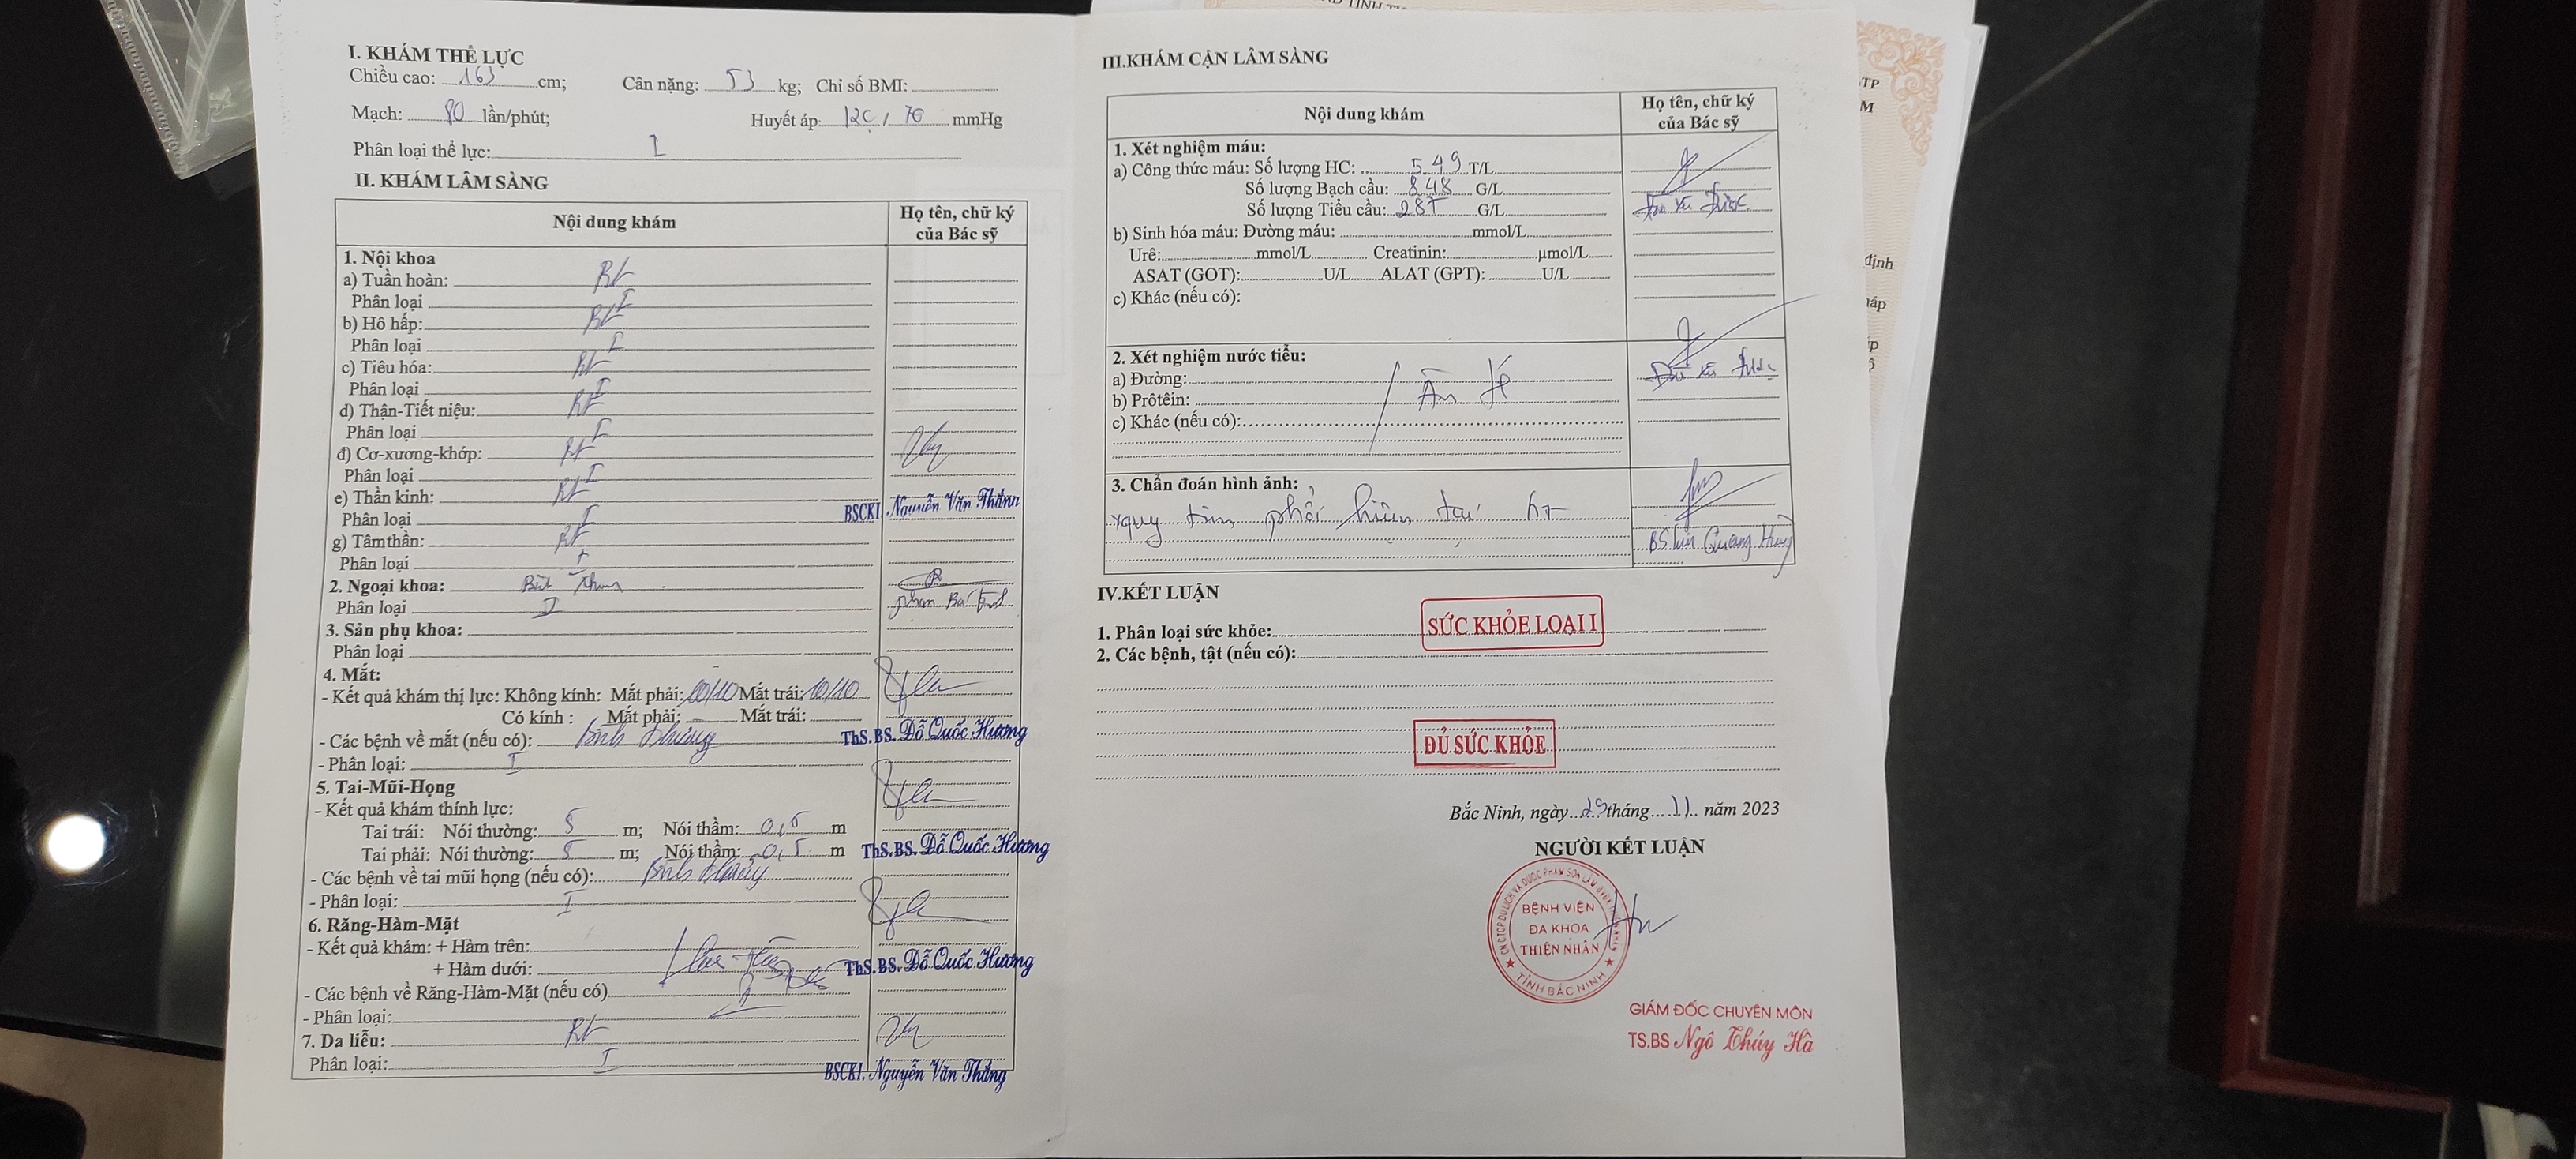 I. KHÁM THỂ LỰC
Chiều cao: 163 cm; Cân nặng: 53 kg; Chỉ số BMI:
Mạch: 80 lần/phút; Huyết áp: 120 / 70 mmHg
Phân loại thể lực: I
II. KHÁM LÂM SÀNG
Nội dung khám
Họ tên, chữ ký
của Bác sỹ
1. Nội khoa
a) Tuần hoàn: Bt
Phân loại I
b) Hô hấp: Bt
Phân loại I
c) Tiêu hóa: Bt
Phân loại I
d) Thận-Tiết niệu: Bt
Phân loại I
đ) Cơ-xương-khớp: Bt
Phân loại I
e) Thần kinh: Bt
BSCKI. Nguyễn Văn Thắng
Phân loại I
g) Tâm thần: Bt
Phân loại I
2. Ngoại khoa: Bình Thường
Phân loại I
3. Sản phụ khoa:
Phân loại
4. Mắt:
- Kết quả khám thị lực: Không kính: Mắt phải: 10/10 Mắt trái: 10/10
Có kính : Mắt phải: Mắt trái:
- Các bệnh về mắt (nếu có): Bình thường
ThS.BS. Đỗ Quốc Hương
- Phân loại: I
5. Tai-Mũi-Họng
- Kết quả khám thính lực:
Tai trái: Nói thường: 5 m; Nói thầm: 0,5 m
Tai phải: Nói thường: 5 m; Nói thầm: 0,5 m
ThS.BS. Đỗ Quốc Hương
- Các bệnh về tai mũi họng (nếu có): Bình thường
- Phân loại: I
6. Răng-Hàm-Mặt
- Kết quả khám: + Hàm trên:
+ Hàm dưới:
ThS.BS. Đỗ Quốc Hương
- Các bệnh về Răng-Hàm-Mặt (nếu có)
- Phân loại:
7. Da liễu: Bt
Phân loại: I
BSCKI. Nguyễn Văn Thắng
III.KHÁM CẬN LÂM SÀNG
Nội dung khám
Họ tên, chữ ký
của Bác sỹ
1. Xét nghiệm máu:
a) Công thức máu: Số lượng HC: 5.49 T/L
Số lượng Bạch cầu: 8.48 G/L
Số lượng Tiểu cầu: 287 G/L
b) Sinh hóa máu: Đường máu: mmol/L
Urê: mmol/L Creatinin: µmol/L
ASAT (GOT): U/L ALAT (GPT): U/L
c) Khác (nếu có):
2. Xét nghiệm nước tiểu:
a) Đường:
Âm
b) Prôtêin:
c) Khác (nếu có):
3. Chẩn đoán hình ảnh:
xquy tim phổi hiện tại bt
BS Quang Huy
IV.KẾT LUẬN
1. Phân loại sức khỏe: SỨC KHỎE LOẠI I
2. Các bệnh, tật (nếu có):
ĐỦ SỨC KHỎE
Bắc Ninh, ngày 29 tháng 11 năm 2023
NGƯỜI KẾT LUẬN
BỆNH VIỆN
ĐA KHOA
THIỆN NHÂN
TỈNH BẮC NINH
GIÁM ĐỐC CHUYÊN MÔN
TS.BS Ngô Thúy Hà
TP
M
định